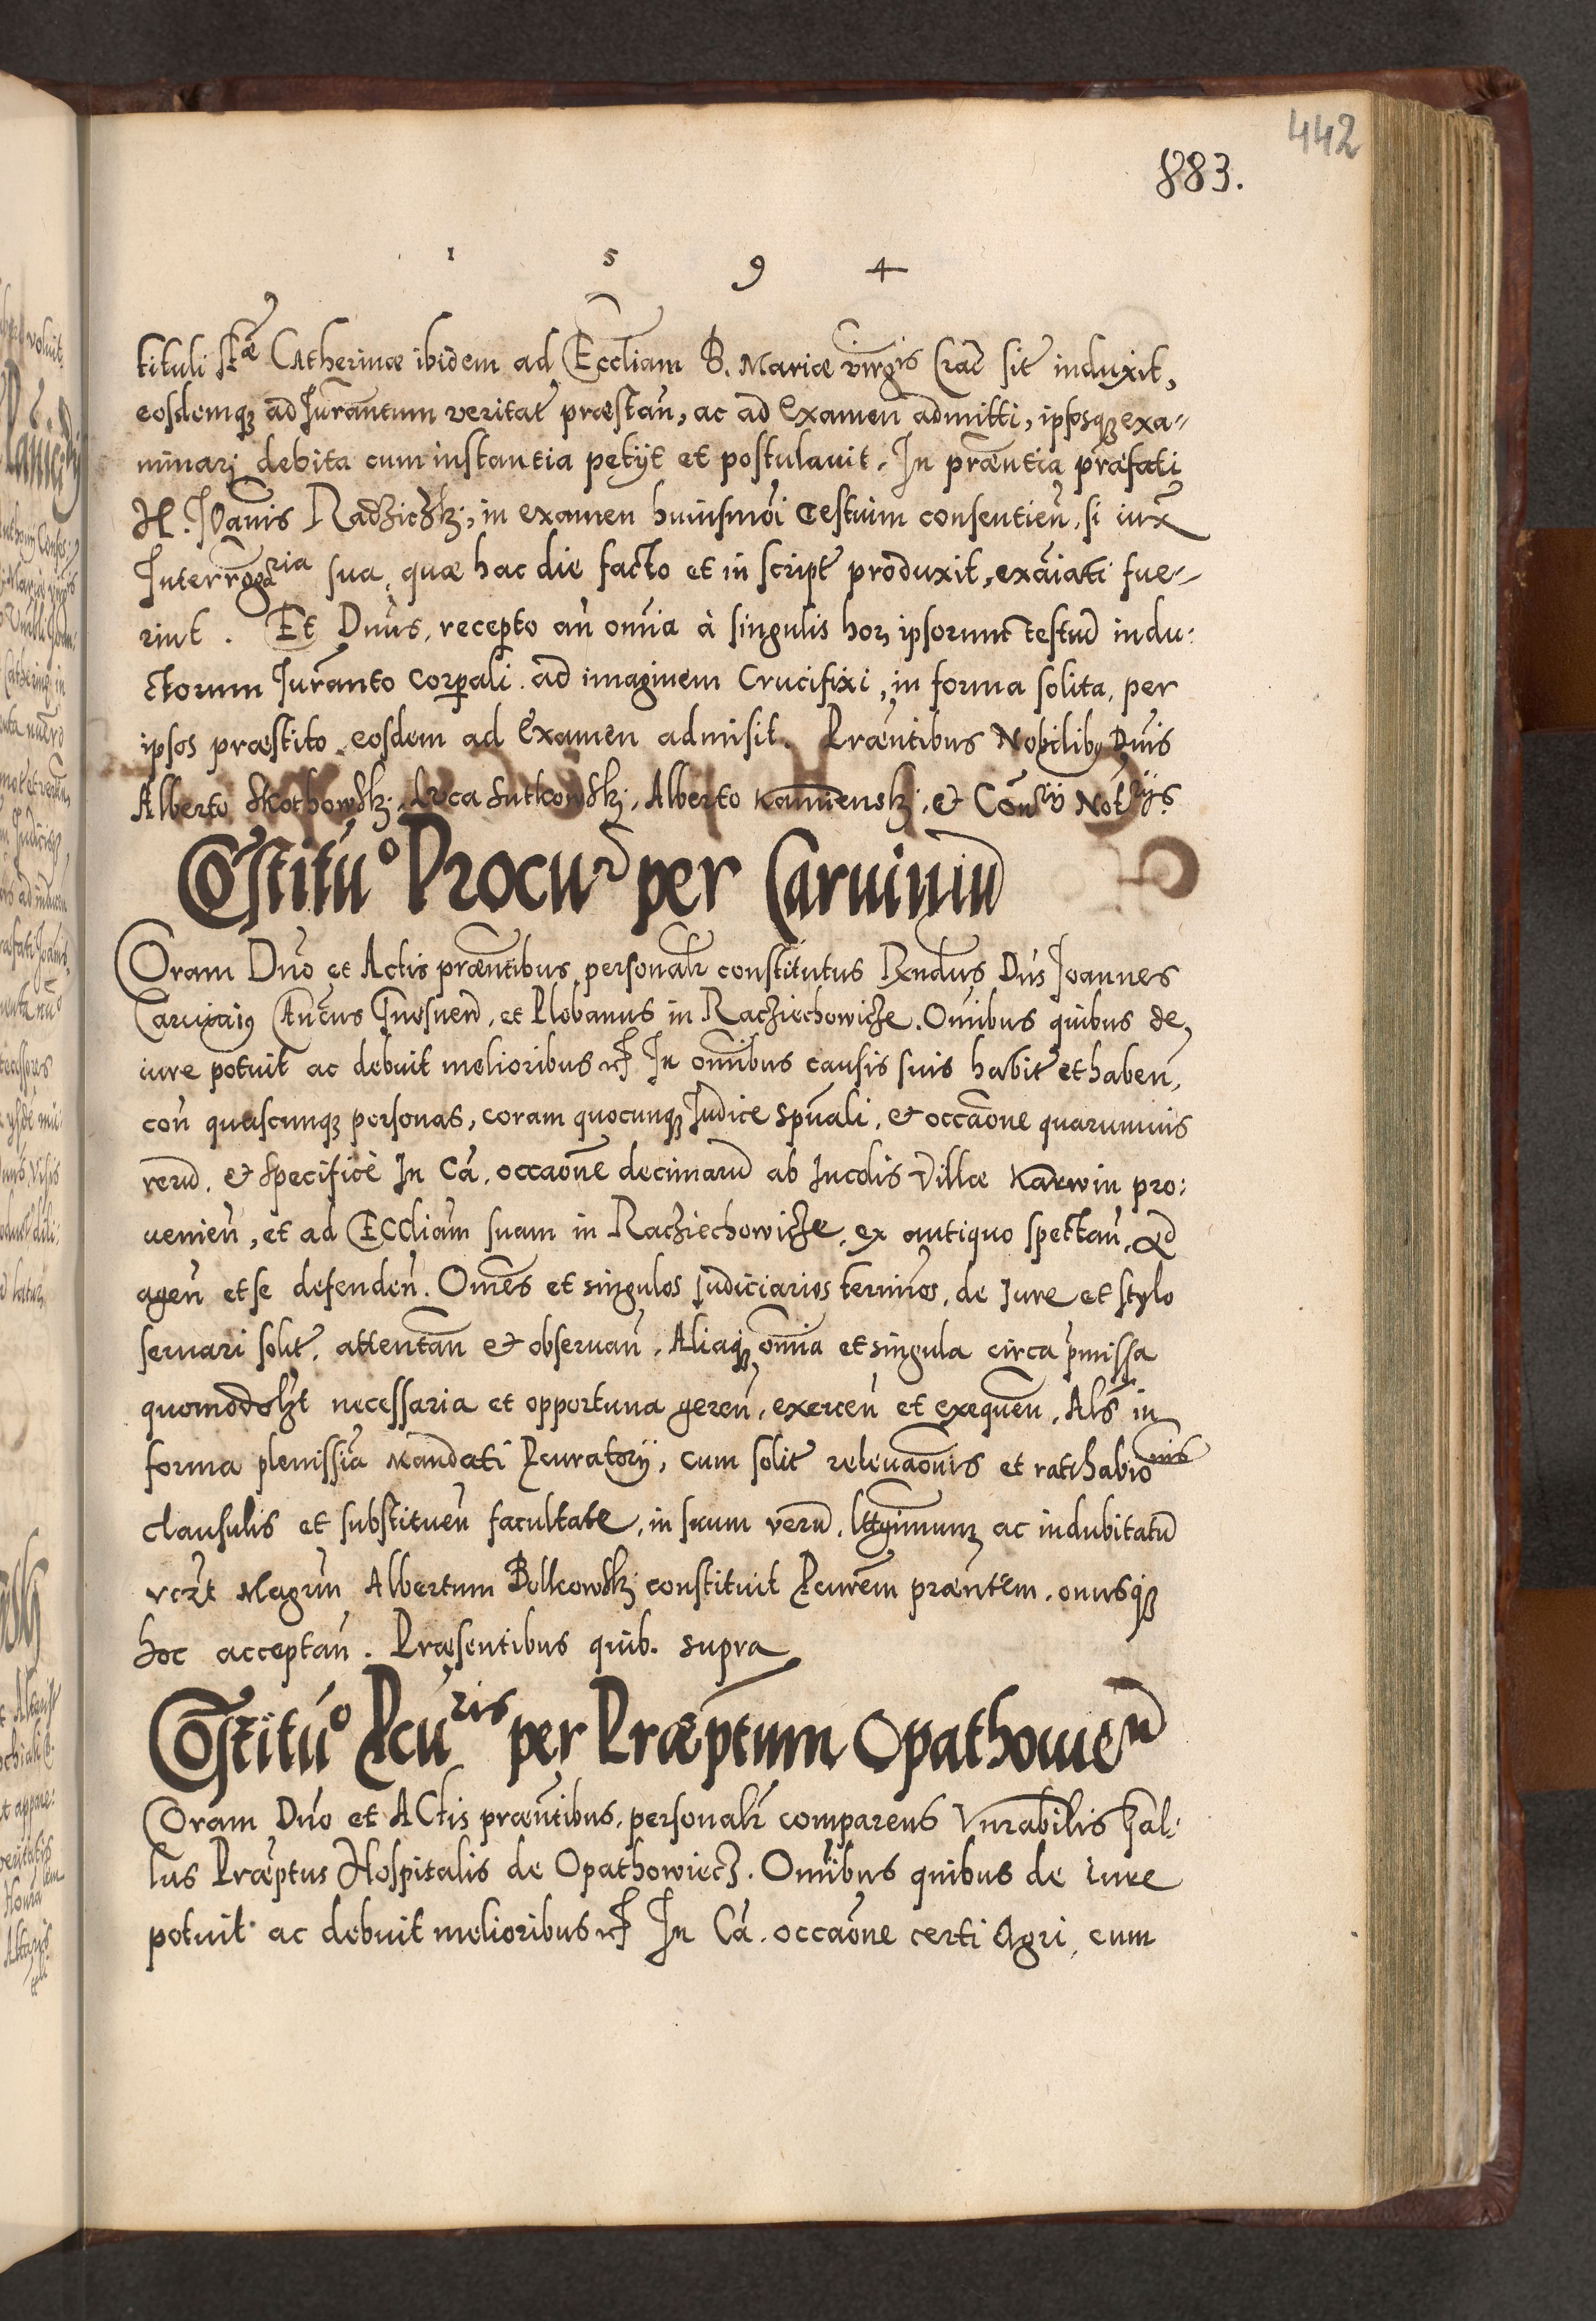 442
883.
1 5 9 4
tituli Stæ Catherinæ ibidem ad Eccliam B. Mariæ virgis Crac sit induxit,
eosdemq3 ad Iurantum veritat præstan, ac ad Examen admitti, ipsosq3 exa-
minarj debita cum instantia petijt et postulauit. In præntia præfati
H. Ioannis Radziczkj, in examen huiusmoi testium consentien, si iux
Interrogaria sua, quæ hac die facto et in script produxit, exaiati fue-
rint. Et Dnus, recepto an omnia à singulis hor ipsorum testiu indu:
ctorum Iuranto corpali ad imaginem Crucifixi, in forma solita, per
ipsos præstito, eosdem ad Examen admisit. Præntibus Nobilib9 Dnis
Alberto Skothowskj, Luca Sutkowskj, Alberto Kamienskj, et Consrÿ Notrijs.
Constituo Procur per Caruiniu
Coram Dno et Actis præntibus personalr constitutus Rndus Dns Ioannes
Caruini9 Cancus Gnesnen, et Plebanus in Racziechowicze. Omnibus quibus de
iure potuit ac debuit melioribus etc In omnibus causis suis habit et haben,
con quascunq3 personas, coram quocunq3 Iudice spuali, et occaone quarumuis
reru, et specificè In Ca, occaone decimaru ab Incolis Villæ Karwin pro:
uenien, et ad Eccliam suam in Racziechowicze, ex antiquo spectan, Ad
agen et se defenden. Omes et singulos Iudiciarios terminos, de Iure et stylo
seruari solit, attentan et obseruan, Aliaq3 omnia et singula circa pmissa
quomodolzt necessaria et opportuna geren, exercen et exequen, Als in
forma plenissia Mandati Pcuratorij, cum solit releuaonis et ratihabionis
clausulis et substituen facultate, in suum veru, lttgimum ac indubitatu
vczt Magrum Albertum Bolkowskj constituit Pcurem præntem, onusq3
hoc acceptan. Præsentibus quib. supra
Constituo Pcuris per Præptum Opathouien
Coram Dno et Actis præntibus, personalr comparens Vnrabilis Gal:
lus Præptus Hospitalis de Opathowiecz. Omnibus quibus de iure
potuit ac debuit melioribus etc In Ca. occaone certi Agri, cum